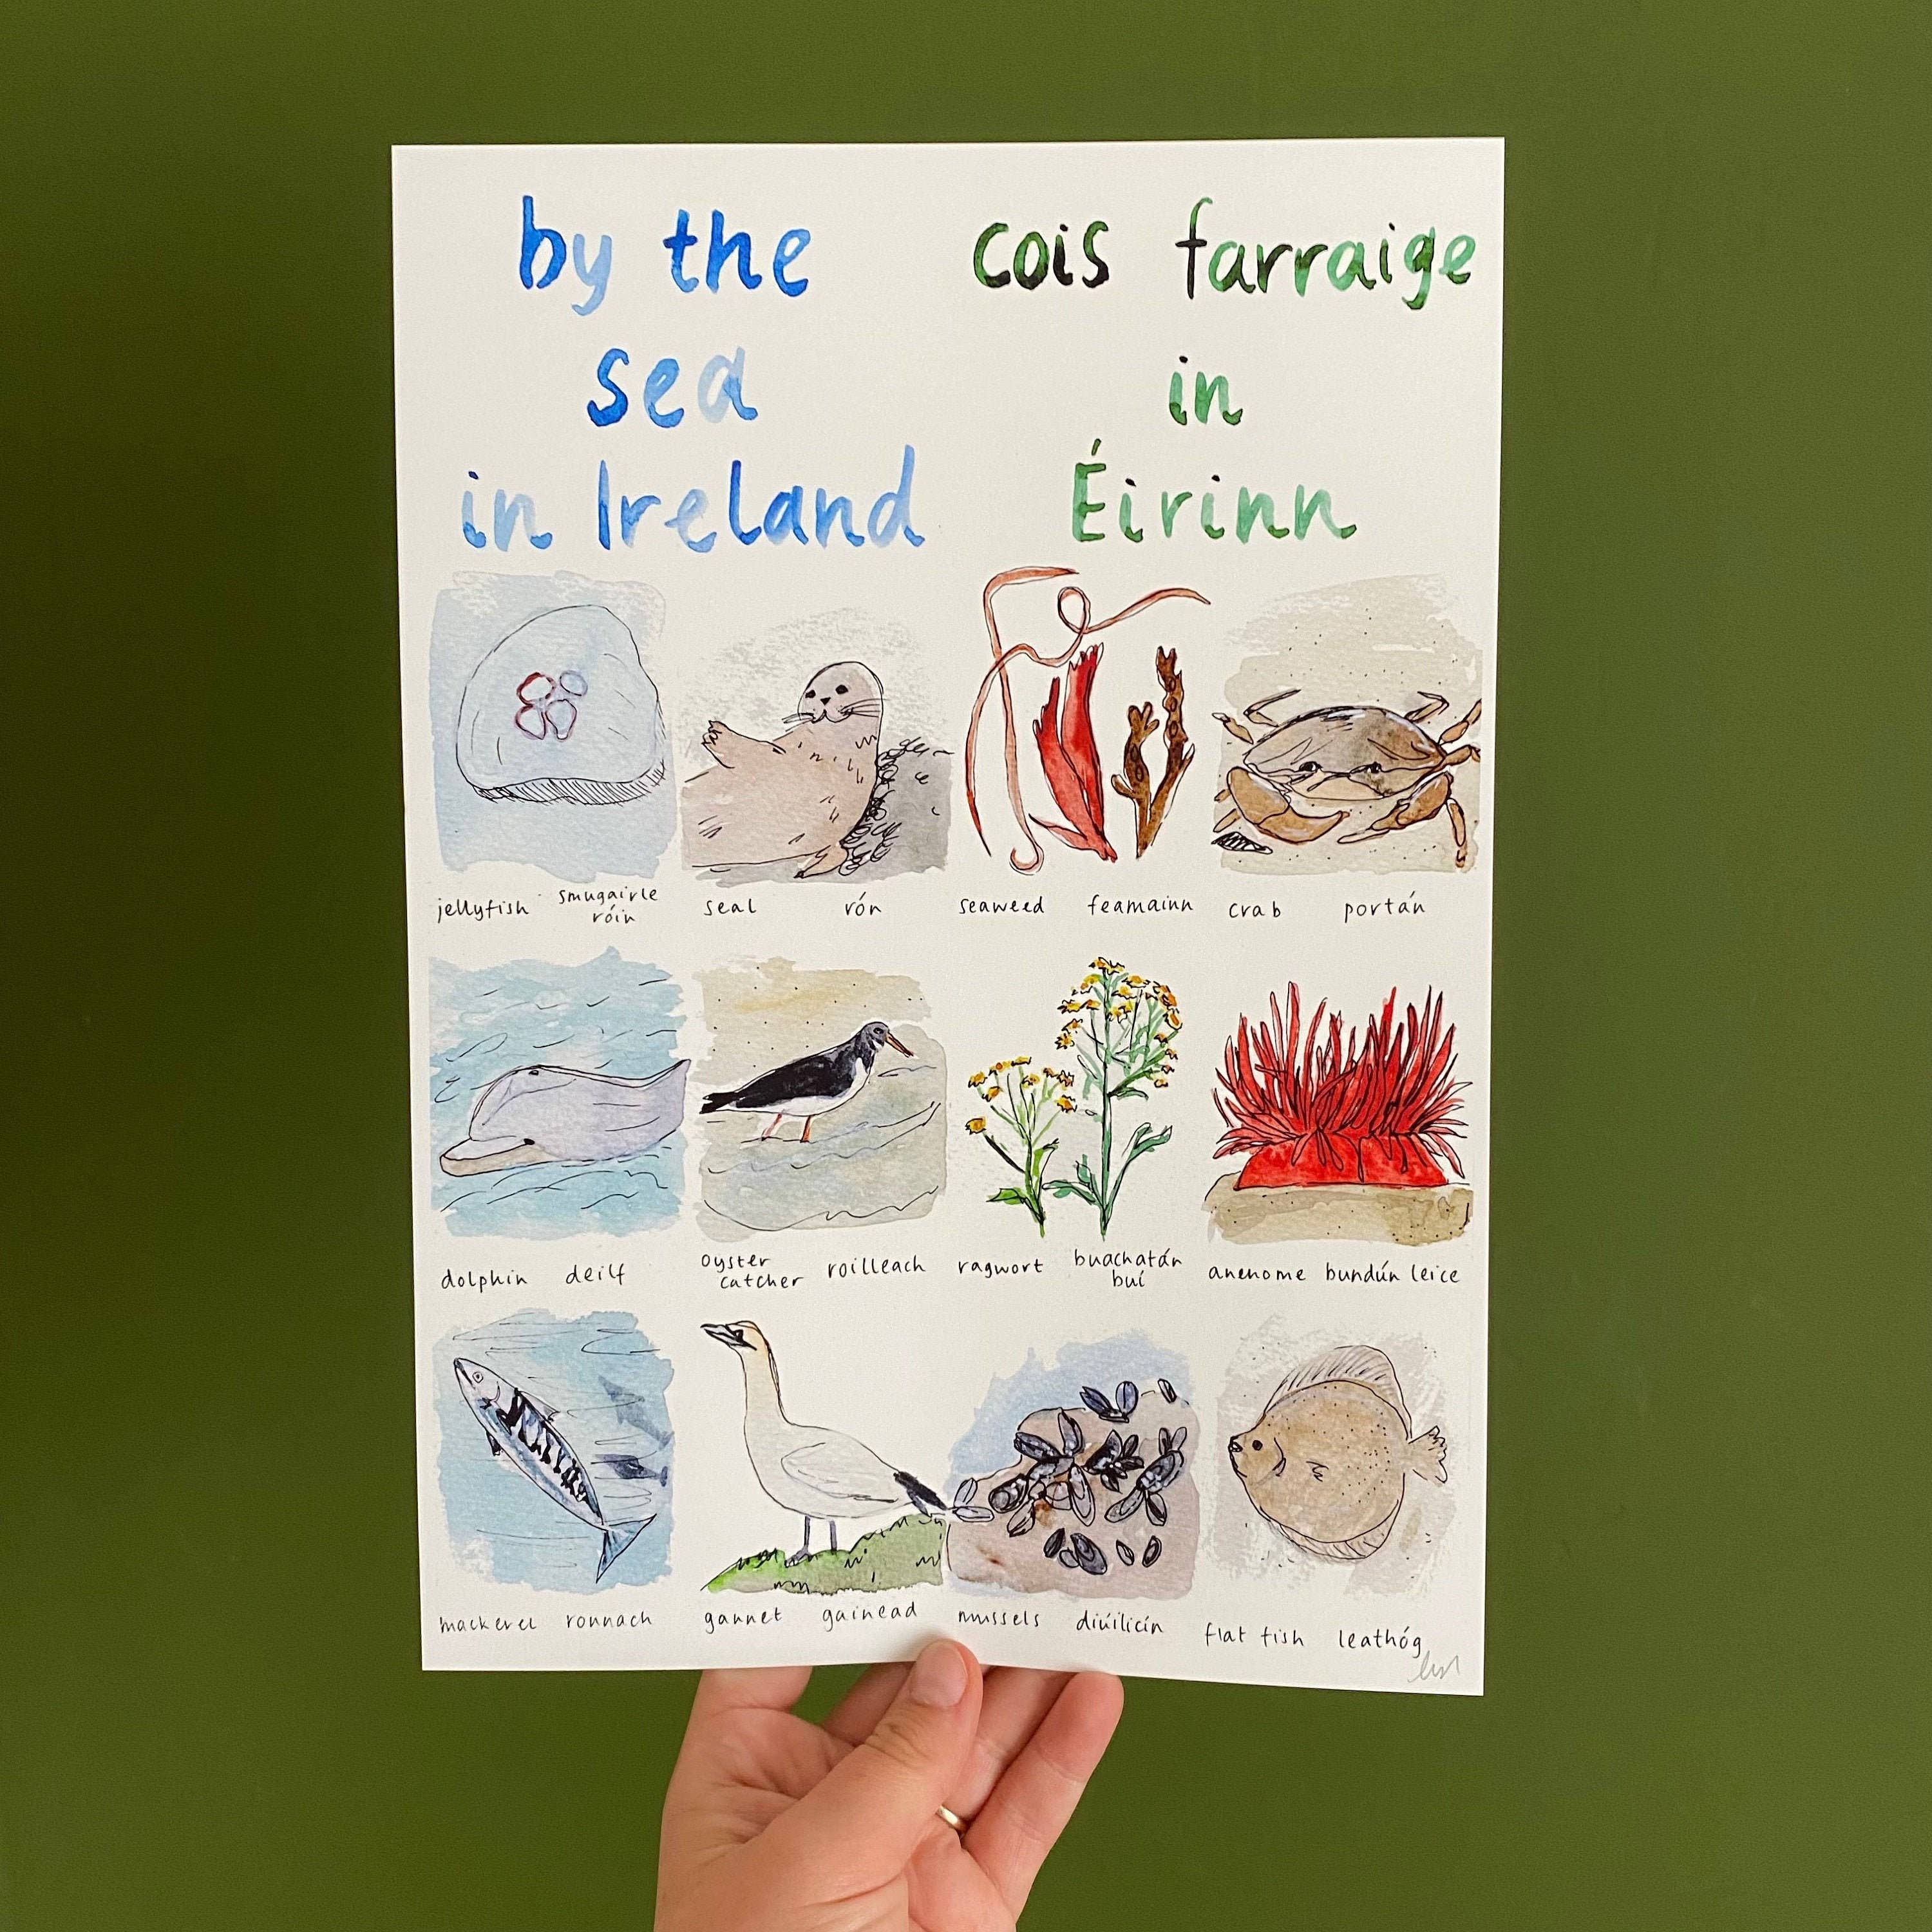 by the
sea
in Ireland
cois farraige
in
Éirinn
jellyfish smugairle
róin
seal rón
seaweed feamainn
crab portán
dolphin deilf
oyster
catcher roilleach
ragwort buachatán
buí
anenome bundún leice
mackerel ronnach
gannet gainead
mussels diúilicín
flat fish leathóg